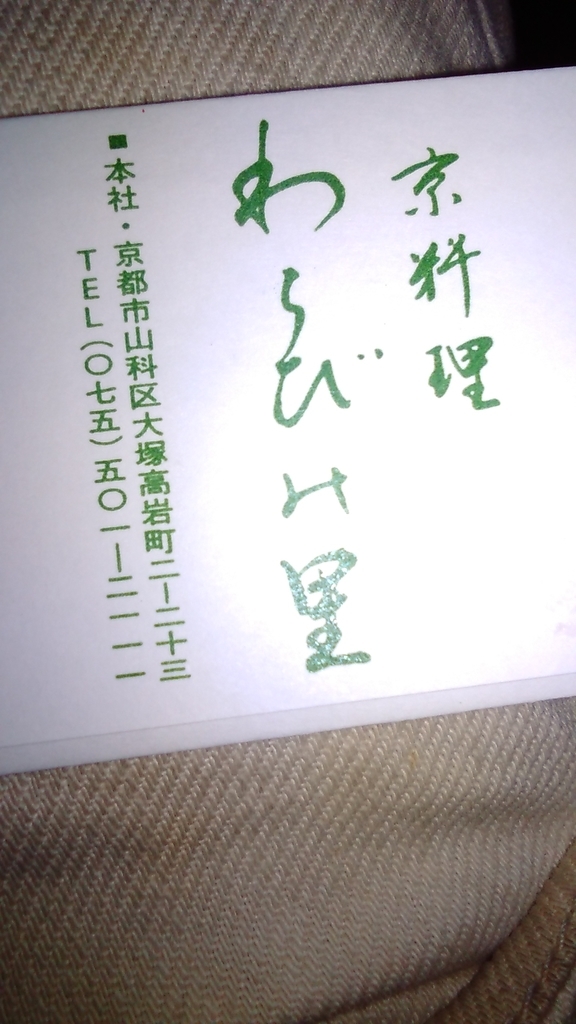 京料理
わらびの里
■本社・京都市山科区大塚高岩町二ー二十三
TEL(〇七五)五〇一ー二一一一